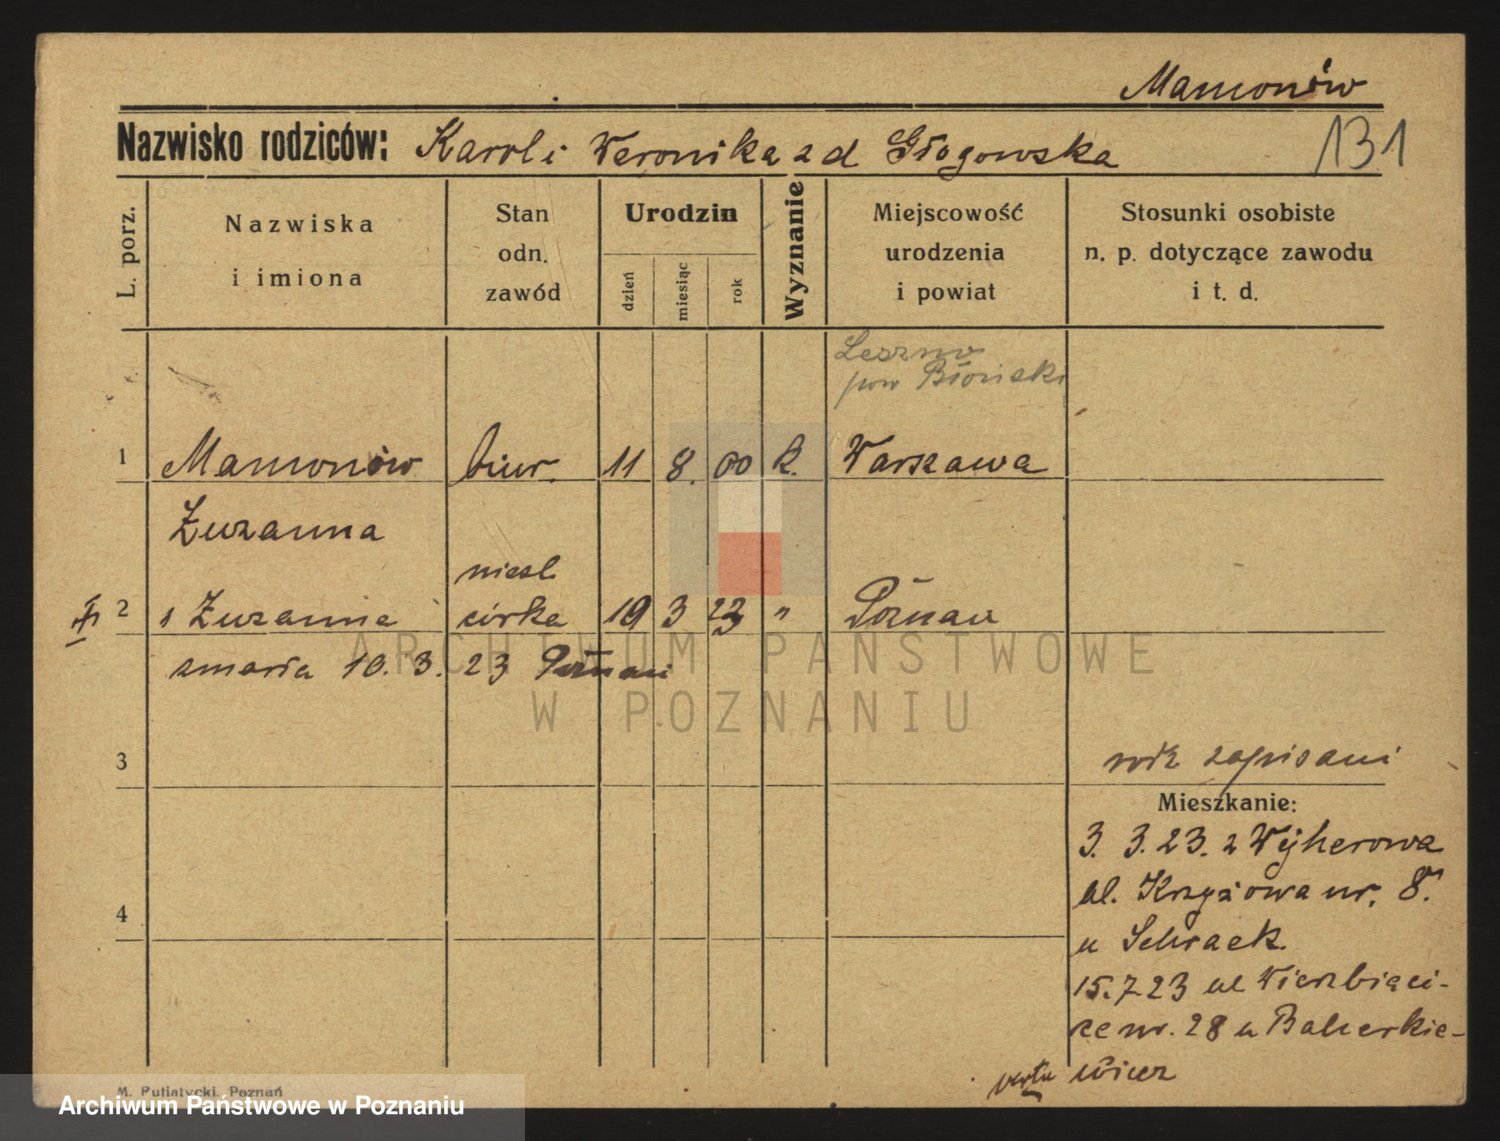 Mamonów
Nazwisko rodziców: Karol i Weronika z d Głogowska
131
L. porz.
Nazwiska
i imiona
Stan
odn.
zawód
Urodzin
dzień
miesiąc
rok
Wyznanie
Miejscowość
urodzenia
i powiat
Stosunki osobiste
n. p. dotyczące zawodu
i t. d.
Leszno
pow Błoński
1 Mamonów biur. 11 8. 00 k. Warszawa
Zuzanna
niesl
2 Zuzanna córka 19 3 23 " Poznań
zmarła 10. 3. 23 Poznań
3
rodz zapisani
Mieszkanie:
3. 3. 23. z Wejherowa
ul. Krzyżowa nr. 8.
4
u Schraek.
15. 7 23 ul Wierzbięci-
ce nr. 28 u Balcerkie-
wicz
vertu
M. Putiatycki, Poznań
ARCHIWUM PAŃSTWOWE
W POZNANIU
Archiwum Państwowe w Poznaniu